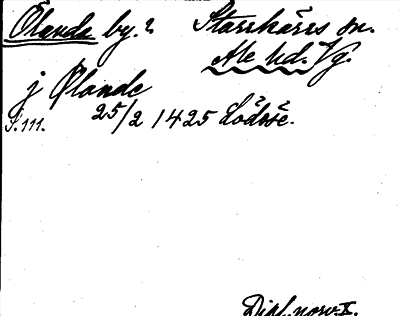 Ölanda by. 2 Starrkärrs sn.
Ale hd. Vg.
j Ølande
S. 111. 25/2 1425 Lödöse.
Dipl. norv. X.